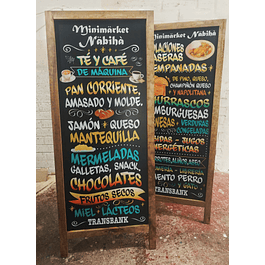 Minimarket
Nabihà
TÉ Y CAFÉ
DE MÁQUINA
PAN CORRIENTE,
AMASADO Y MOLDE,
JAMÓN QUESO
MANTEQUILLA
MERMELADAS
GALLETAS, SNACK,
CHOCOLATES
FRUTOS SECOS
MIEL LÁCTEOS
TRANSBANK
Minimarket
Nabihà
LACIONES
ASERAS
EMPANADAS
DE PINO, QUESO,
CHAMPIÑÓN QUESO
Y NAPOLITANA
HURRASCOS
MBURGUESAS
NESAS VERDURAS
CONGELADAS
DAS - JUGOS
ERGÉTICAS
LIBRERIA
MENTO PERRO
Y GATO
TRANSBANK